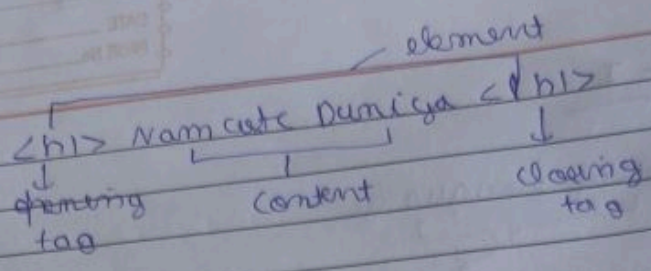 element
<h1> Namaste Duniya </h1>
opening content closing
tag tag